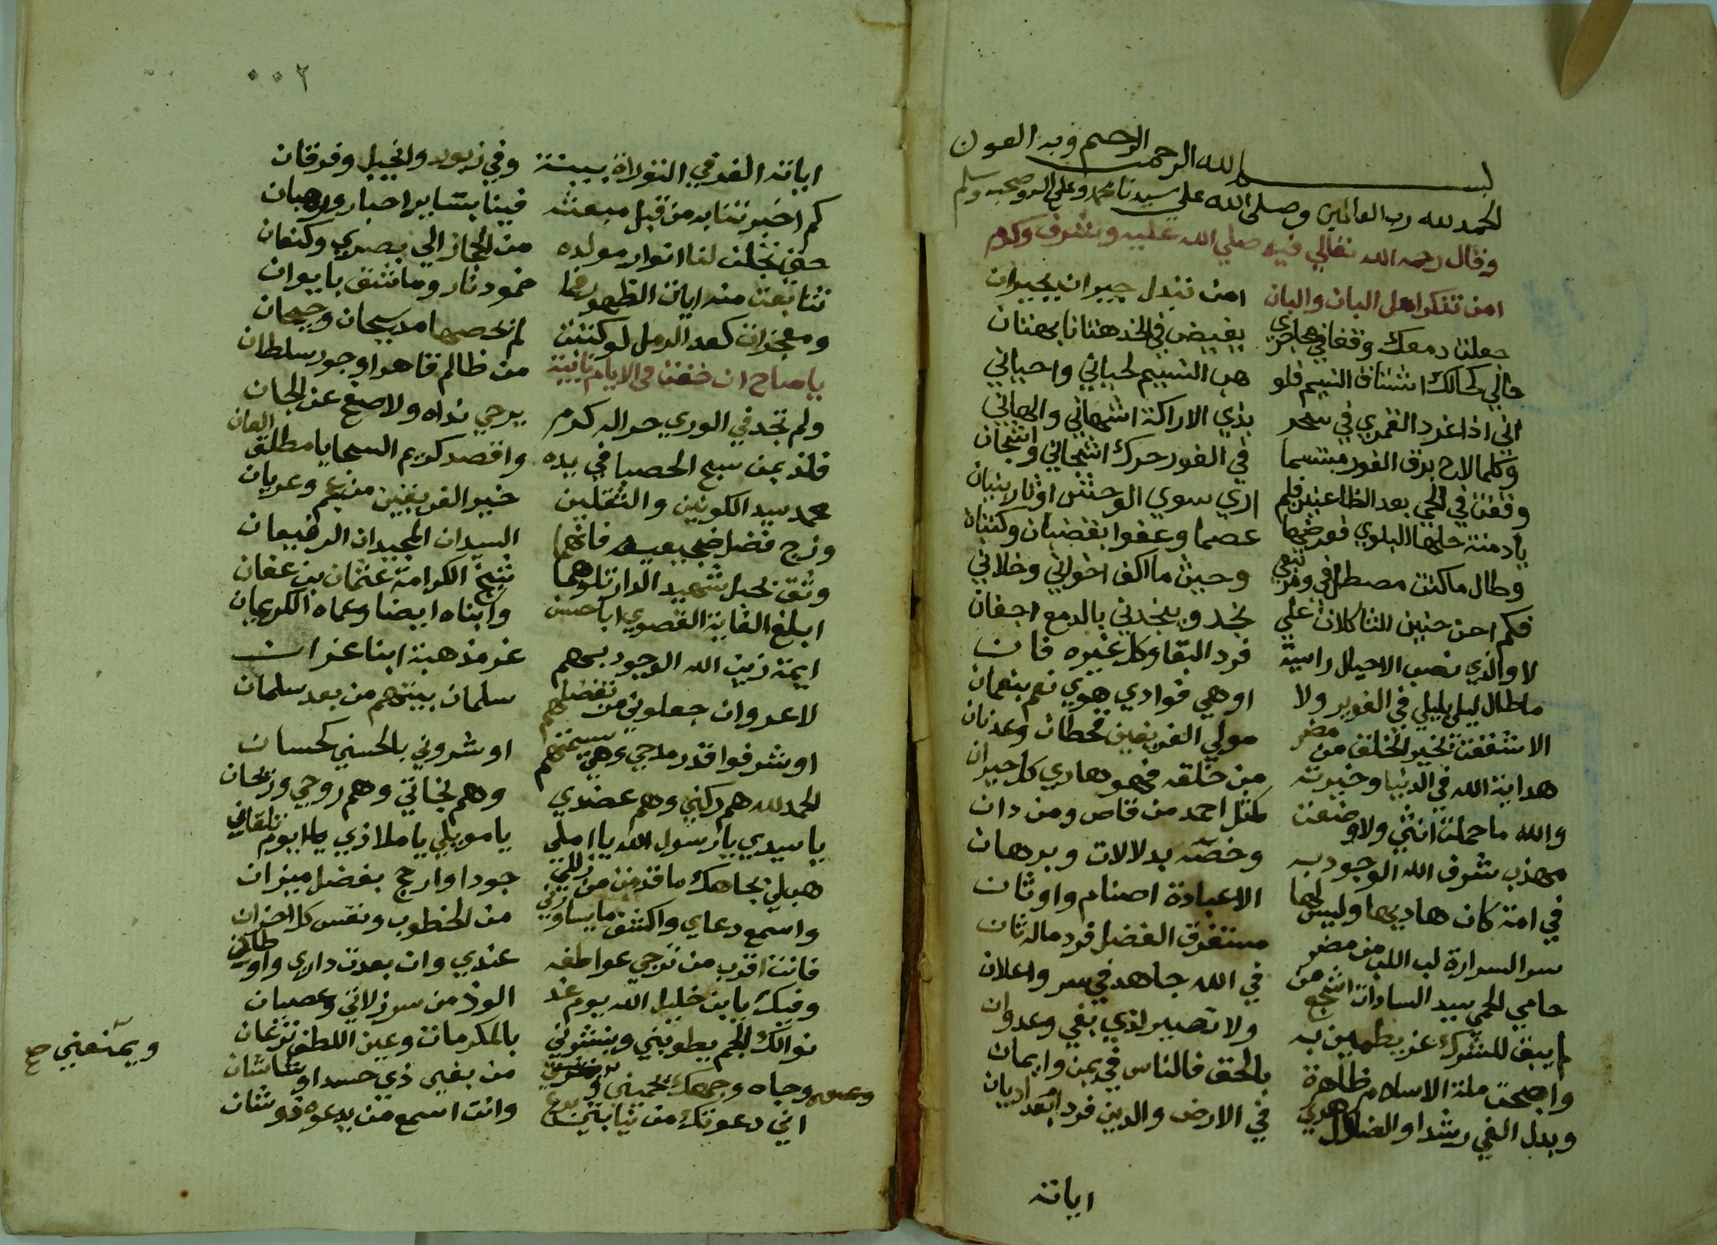 بسم الله الرحمن الرحيم وبه العون
الحمد لله رب العالمين وصلى الله على سيدنا محمد وعلى اله وصحبه وسلم
وقال رحمه الله تعالي فيه صلي الله عليه وشرف وكرم
امن تذكر اهل البان والبان امن تبدل جيران بجيران
جعلت دمعك وقفا في محاجري يفيض في الخد هتانا بهتان
حالي كحالك اشتاق النسيم فلو هب النسيم لحياني واحياني
اني اذا غرد القمري في سحر بذي الاراكة اشهاني والهاني
وكلما لاح برق الغور مبتسما في الغور حرك اشجاني واشجان
وقفت في الحي بعد الظاعنين فلم اري سوي الوحش اوثار بنيان
يا دمنة حلها البلوي فعرضها عصما وعفوا بغضبان وكتبان
وطال ما كنت مصطافي ومرتبعي وحيث ما الف اخواني وخلاني
فكم احن حنين الثاكلات علي نجد وينجدني بالدمع اجفان
لا والذي نصب الاجبال راسية فرد البقا وكل غيره فان
ما طال ليلي بليلي في الغوير ولا اوهي فوادي هوي نعم بنعمان
الا شغفت بخير الخلق من مضر مولي الفريقين قحطان وعدنان
هداية الله في الدنيا وخيرته من خلقه فهو هادي كل حيران
والله ما حملت انثي ولا وضعت كمثل احمد من قاص ومن دان
مهذب شرف الله الوجود به وخصه بدلالات وبرهان
في امة كان هاديها وليس لها الا عبادة اصنام واوثان
سر السرارة لب اللب من مضر مستغرق الفضل فرد ماله ثان
حامي الحمي سيد السادات اشجع من في الله جاهد في سر واعلان
لم يبق للشرك عز يطمين به ولا نصير لذي بغي وعدوان
واصبحت ملة الاسلام ظاهرة بالحق فالناس في يمن وايمان
وبدل الغي رشدا والضلال هدي في الارض والدين فرد ابعد اديان
اياته
٠٠٢
اياته الغر في التوراة بينة وفي زبور وانجيل وفرقان
كم اخبرتنا به من قبل مبعثه فينا بشاير احبار ورهبان
حتي تجلت لنا انوار مولده من الحجاز الي بصري وكنعان
تتابعت منه ايات الظهور فما خمود نار وما شق بايوان
ومعجزات كعد الرمل لو كتبت لم يحصها مد سيحان وجيحان
يا صاح ان خفت في الايام نايبة من ظالم قاهر او جور سلطان
ولم تجد في الوري حرا له كرم يرجي نداه ولا صفح عن الجان
فلذ بمن سبح الحصبا في يده واقصد كريم السجايا مطلق العان
محمد سيد الكونين والثقلين خير الفريقين من عجم وعربان
وزج فضل ضجيعيه فانهما السيدان المجيدان الرفيعان
وثق بحبل شهيد الدار تلوهما شيخ الكرامة عثمان بن عفان
ابلغ الغاية القصوي ابا حسن وابناه ايضا وعماه الكريمان
ايمة زين الله الوجود بهم
لا غرو ان جعلوني من تفضلهم سلمان بيتهم من بعد سلمان
او شرفوا قدر مدحي وهي شيمتهم او شروني بالحسني كحسان
الحمد لله هم ركني وهم عضدي وهم نجاتي وهم روحي وريحان
يا سيدي يا رسول الله يا املي يا مويلي يا ملاذي يوم تلقاني
هبلي بجاهك ما قدمت من زللي جودا وارجح بفضل ميزان
واسمع دعاي واكشف ما يساورني من الخطوب ونفس كل احزان
فانت اقرب من ترجي عواطفه عندي وان بعدت داري واوطاني
وفيك يا بن خليل الله يوم غد الوذ من سوزلاتي وعصيان
نوالك الجم يطويني وينشرني بالمكرمات وعين اللطف ترعان
وجاه وجهك يحميني من بغي ذي حسد او شاشان
اني دعوتك من نيابتي برع وانت اسمع من يدعوه ذو شان
ويمنعني صح